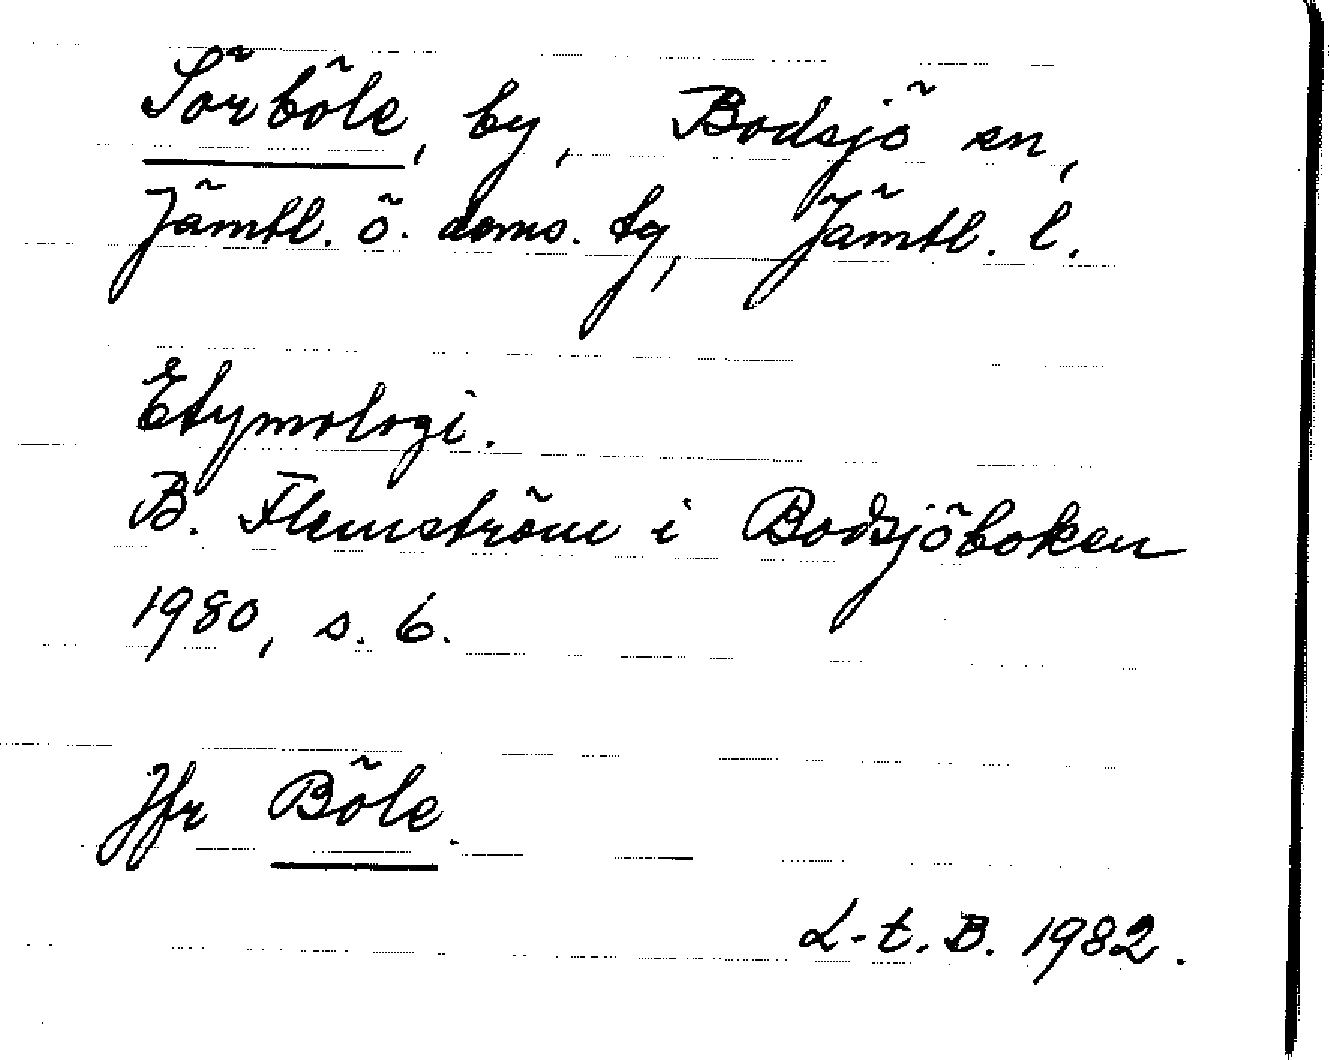 Sörböle, by, Bodsjö sn,
Jämtl. ö. doms. tg, Jämtl. l.
Etymologi.
B. Flemström i Bodsjöboken
1980, s. 6.
Jfr Böle.
L-t. B. 1982.